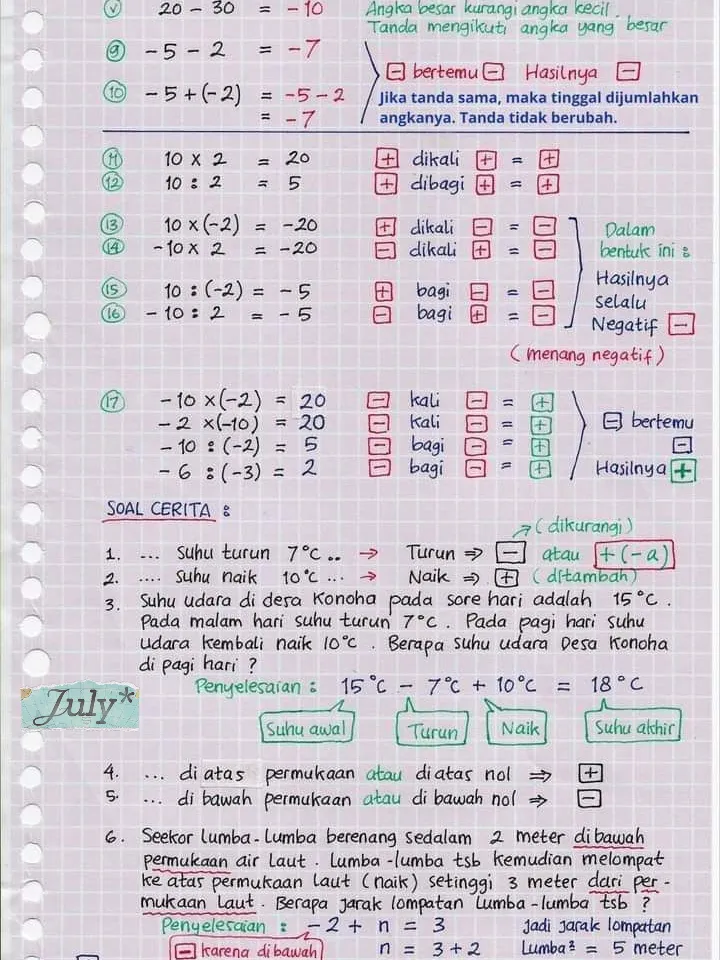 20 - 30 = - 10 Angka besar kurangi angka kecil.
Tanda mengikuti angka yang besar
9 - 5 - 2 = - 7
- bertemu - Hasilnya -
10 - 5 + (- 2) = - 5 - 2
= - 7
Jika tanda sama, maka tinggal dijumlahkan
angkanya. Tanda tidak berubah.
11 10 x 2 = 20 + dikali + = +
12 10 : 2 = 5 + dibagi + = +
13 10 x (-2) = -20 + dikali - = -
14 -10 x 2 = -20 - dikali + = -
15 10 : (-2) = - 5 + bagi - = -
16 - 10 : 2 = - 5 - bagi + = -
Dalam
bentuk ini :
Hasilnya
selalu
Negatif -
(menang negatif)
17 - 10 x (-2) = 20 - kali - = +
- 2 x (-10) = 20 - kali - = +
- 10 : (-2) = 5 - bagi - = +
- 6 : (-3) = 2 - bagi - = +
- bertemu
-
Hasilnya +
SOAL CERITA :
(dikurangi)
1. ... Suhu turun 7°C .. → Turun ⇒ - atau + (- a)
2. .... Suhu naik 10°C ... → Naik ⇒ + (ditambah)
3. Suhu udara di desa Konoha pada sore hari adalah 15°C.
Pada malam hari suhu turun 7°C. Pada pagi hari suhu
udara kembali naik 10°C. Berapa suhu udara Desa Konoha
di pagi hari ?
Penyelesaian : 15°C - 7°C + 10°C = 18°C
Suhu awal Turun Naik Suhu akhir
July*
4. ... di atas permukaan atau diatas nol ⇒ +
5. ... di bawah permukaan atau di bawah nol ⇒ -
6. Seekor lumba-lumba berenang sedalam 2 meter dibawah
permukaan air laut. Lumba-lumba tsb kemudian melompat
ke atas permukaan laut (naik) setinggi 3 meter dari per-
mukaan laut. Berapa jarak lompatan lumba-lumba tsb ?
Penyelesaian : - 2 + n = 3 Jadi jarak lompatan
- karena dibawah n = 3 + 2 Lumba² = 5 meter